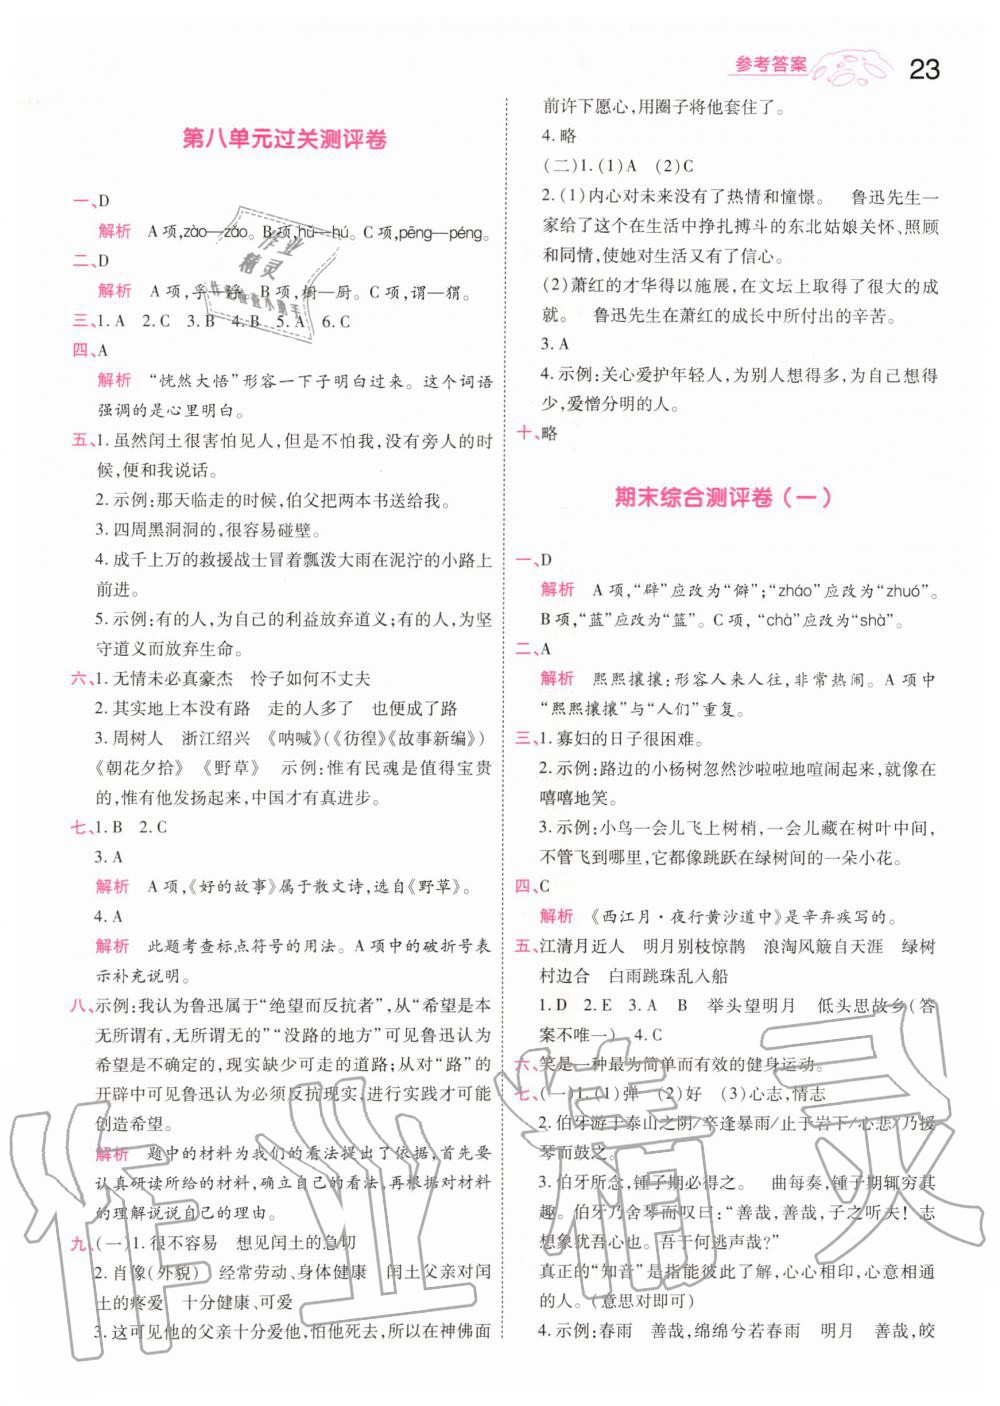 参考答案 23
第八单元过关测评卷
一、D
解析 A项,zào—zāo。B项,hǔ—hú。C项,pēng—péng。
二、D
解析 A项,孚—稃。B项,橱—厨。C项,谓—猬。
三、1. A 2. C 3. B 4. B 5. A 6. C
四、A
解析 “恍然大悟”形容一下子明白过来。这个词语
强调的是心里明白。
五、1. 虽然闰土很害怕见人,但是不怕我,没有旁人的时
候,便和我说话。
2. 示例:那天临走的时候,伯父把两本书送给我。
3. 四周黑洞洞的,很容易碰壁。
4. 成千上万的救援战士冒着瓢泼大雨在泥泞的小路上
前进。
5. 示例:有的人,为自己的利益放弃道义;有的人,为坚
守道义而放弃生命。
六、1. 无情未必真豪杰 怜子如何不丈夫
2. 其实地上本没有路 走的人多了 也便成了路
3. 周树人 浙江绍兴 《呐喊》(《彷徨》《故事新编》)
《朝花夕拾》 《野草》 示例:惟有民魂是值得宝贵
的,惟有他发扬起来,中国才有真进步。
七、1. B 2. C
3. A
解析 A项,《好的故事》属于散文诗,选自《野草》。
4. A
解析 此题考查标点符号的用法。A项中的破折号表
示补充说明。
八、示例:我认为鲁迅属于“绝望而反抗者”,从“希望是本
无所谓有,无所谓无的”“没路的地方”可见鲁迅认为
希望是不确定的,现实缺少可走的道路;从对“路”的
开辟中可见鲁迅认为必须反抗现实,进行实践才可能
创造希望。
解析 题中的材料为我们的看法提出了依据,首先要
认真研读所给的材料,确立自己的看法,再根据对材料
的理解说说自己的看法。
九、(一)1. 很不容易 想见闰土的急切
2. 肖像(外貌) 经常劳动、身体健康 闰土父亲对闰
土的疼爱 十分健康、可爱
3. 这可见他的父亲十分爱他,怕他死去,所以在神佛面
前许下愿心,用圈子将他套住了。
4. 略
(二)1. (1)A (2)C
2. (1)内心对未来没有了热情和憧憬。 鲁迅先生一
家给了这个在生活中挣扎搏斗的东北姑娘关怀、照顾
和同情,使她对生活又有了信心。
(2)萧红的才华得以施展,在文坛上取得了很大的成
就。 鲁迅先生在萧红的成长中所付出的辛苦。
3. A
4. 示例:关心爱护年轻人,为别人想得多,为自己想得
少,爱憎分明的人。
十、略
期末综合测评卷(一)
一、D
解析 A项,“辟”应改为“僻”;“zháo”应改为“zhuó”。
B项,“蓝”应改为“篮”。C项,“chà”应改为“shà”。
二、A
解析 熙熙攘攘:形容人来人往,非常热闹。A项中
“熙熙攘攘”与“人们”重复。
三、1. 寡妇的日子很困难。
2. 示例:路边的小杨树忽然沙啦啦地喧闹起来,就像在
嘻嘻地笑。
3. 示例:小鸟一会儿飞上树梢,一会儿藏在树叶中间,
不管飞到哪里,它都像跳跃在绿树间的一朵小花。
四、C
解析 《西江月·夜行黄沙道中》是辛弃疾写的。
五、江清月近人 明月别枝惊鹊 浪淘风簸自天涯 绿树
村边合 白雨跳珠乱入船
1. D 2. E 3. A B 举头望明月 低头思故乡(答
案不唯一) 4. C
六、笑是一种最为简单而有效的健身运动。
七、(一)1. (1)弹 (2)好 (3)心志,情志
2. 伯牙游于泰山之阴/卒逢暴雨/止于岩下/心悲/乃援
琴而鼓之。
3. 伯牙所念,锺子期必得之。 曲每奏,锺子期辄穷其
趣。伯牙乃舍琴而叹曰:“善哉,善哉,子之听夫!志
想象犹吾心也。吾于何逃声哉?”
真正的“知音”是指能彼此了解,心心相印,心意相通的
人。(意思对即可)
4. 示例:春雨 善哉,绵绵兮若春雨 明月 善哉,皎
作业精灵